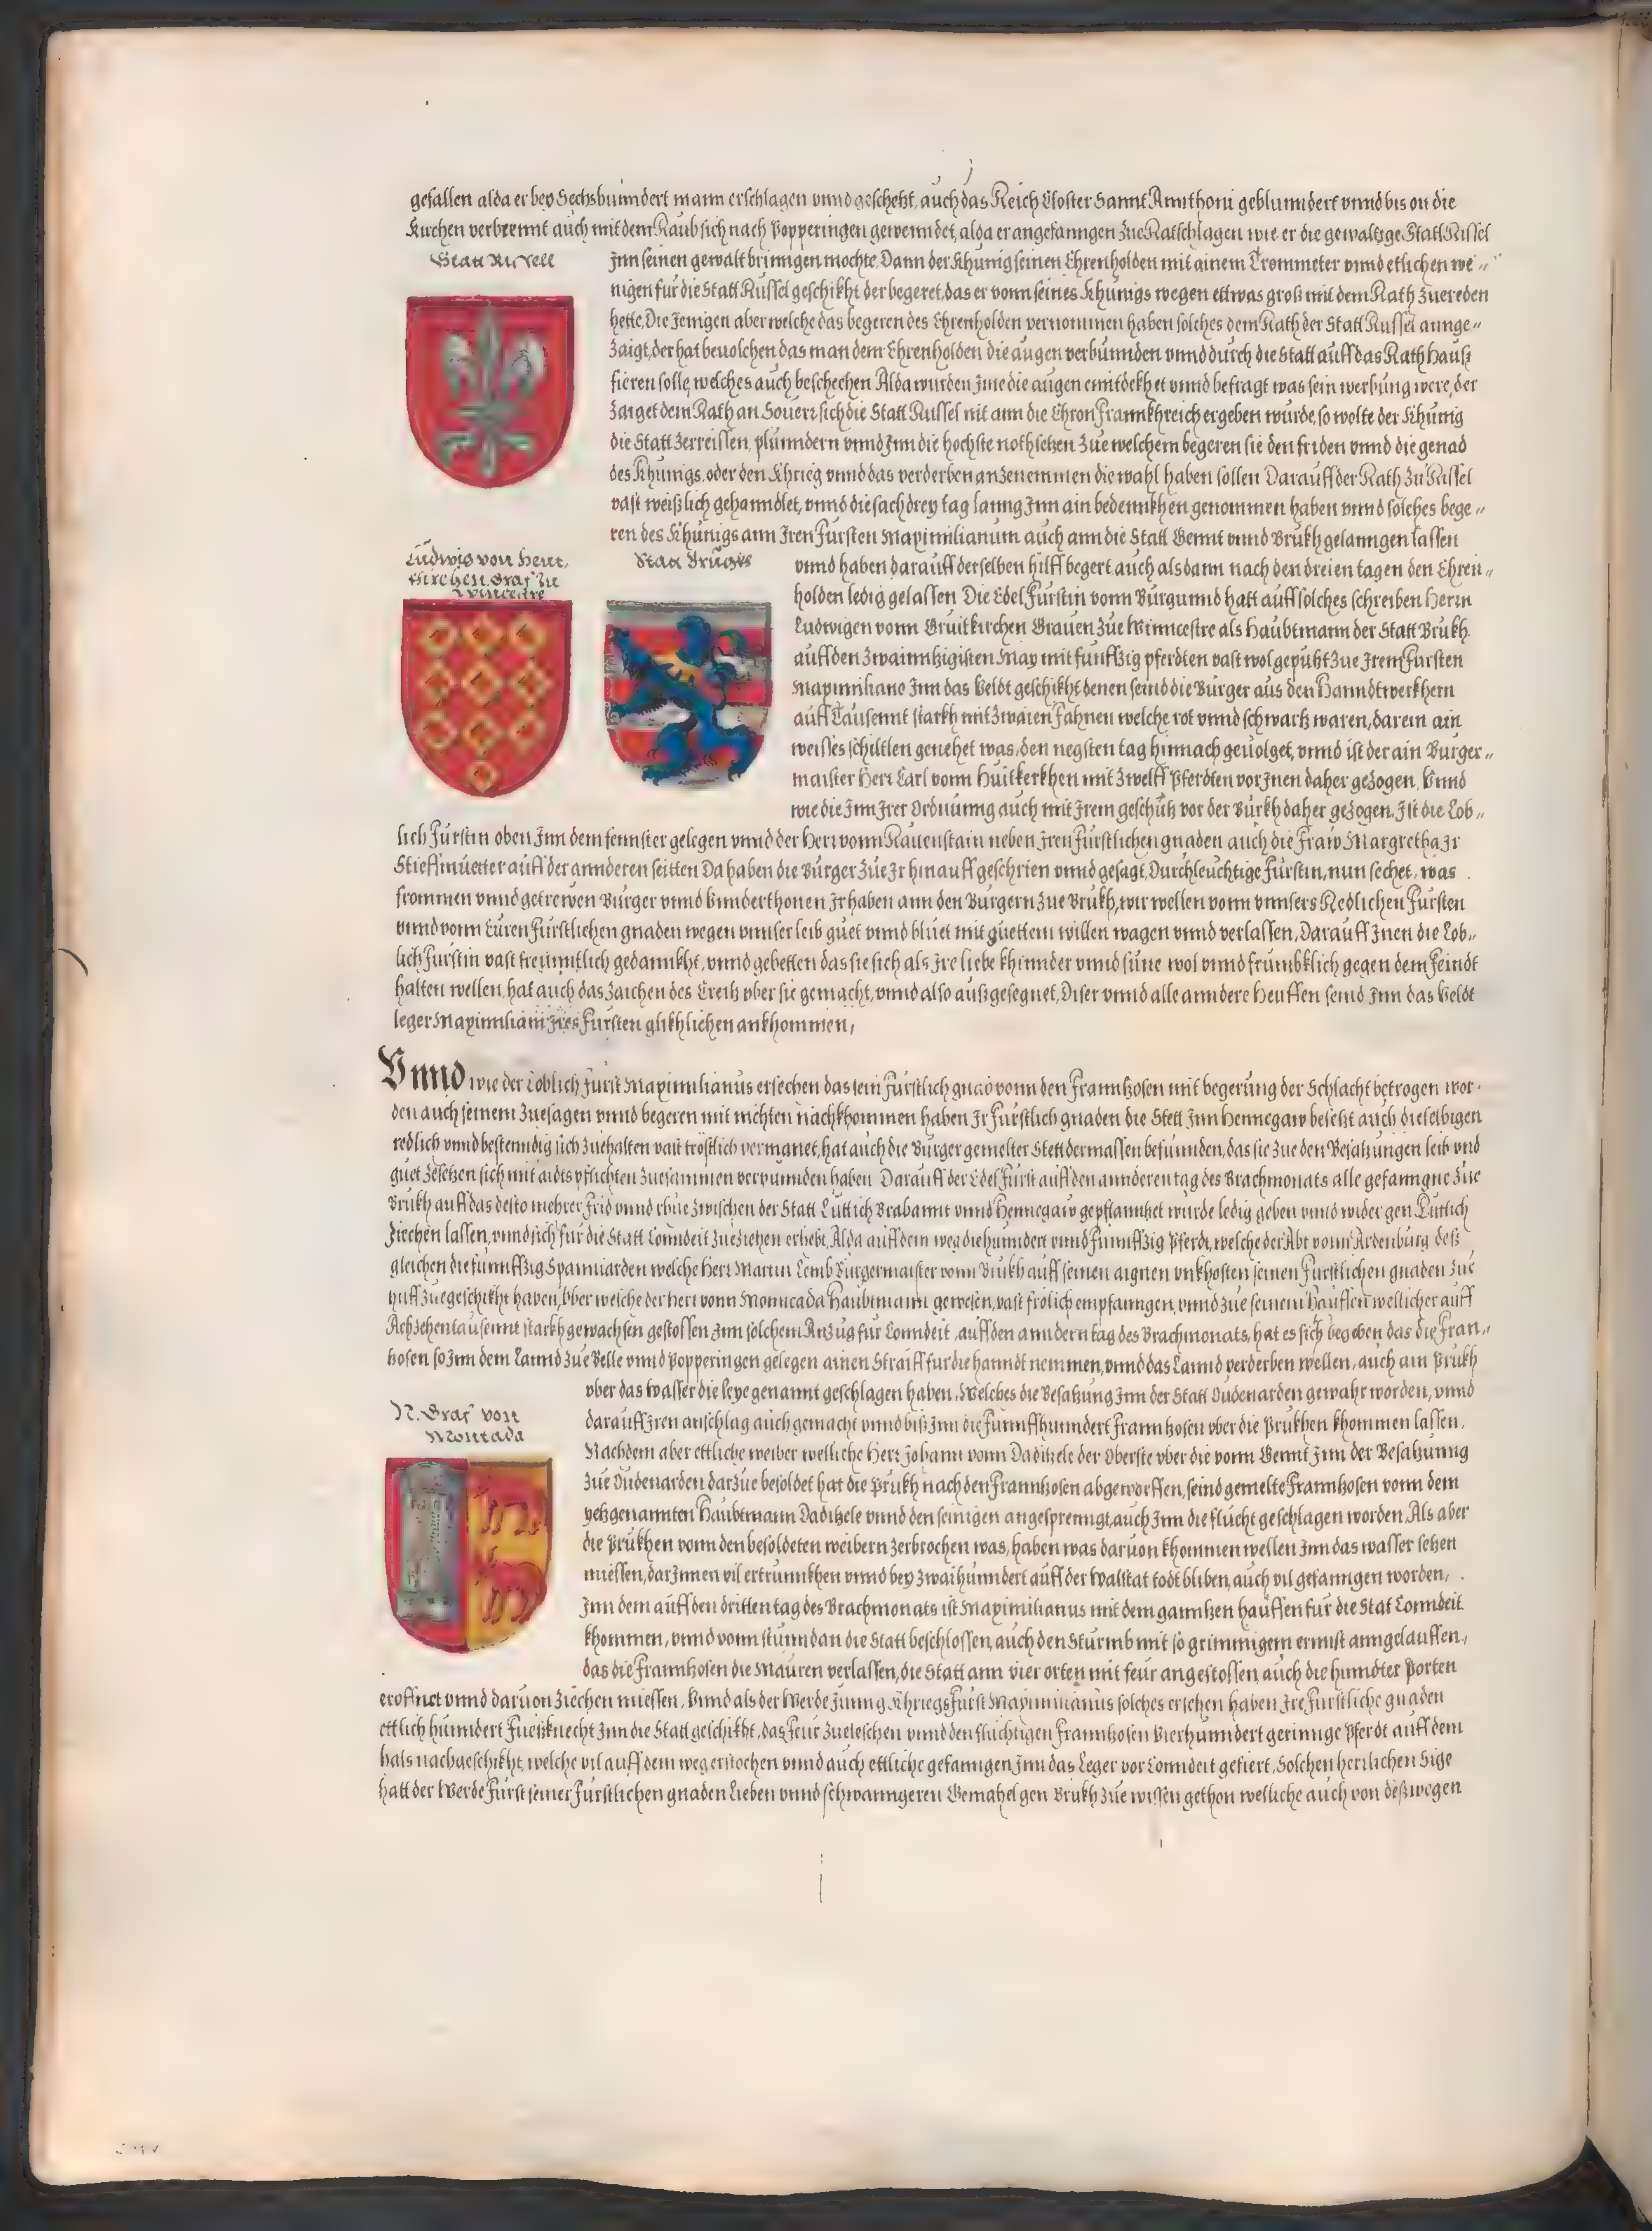 gefallen alda er bey Sechshunndert mann erschlagen vnnd geschetzt, auch das Reich Closter Sannt Annthoni geblunndert vnnd bis on die
Kirchen verbrennt auch mit dem Raub sich nach Popperingen gewenndet, alda er angefanngen Zue Ratschlagen wie er die gewaltige Statt Rissel
Statt Rissell
Inn seinen gewalt bringen mochte, Dann der Khunig seinen Ehrenholden mit ainem Trommeter vnnd etlichen we„
nigen für die Statt Russel geschikht der begeret, das er vonn seines Khunigs wegen ettwas groß mit dem Rath Zuereden
hette, Die Jenigen aber welche das begeren des Ehrenholden vernommen haben solches dem Rath der Statt Russel annge„
Zaigt, der hat beuolchen das man dem Ehrenholden die augen verbunnden vnnd durch die Statt auff das Rath hauß
fieren solle, welches auch beschechen Alda wurden Ime die augen enntdekhet vnnd befragt was sein werbung were, der
Zaiget dem Rath an Souerr sich die Statt Russel nit ann die Chron Frannkhreich ergeben wurde, so wolte der Khunig
die Statt Zerreissen, plunndern vnnd Inn die hochste noth setzen Zue welchem begeren sie den friden vnnd die genad
des Khunigs, oder den Khrieg vnnd das verderben anzenemmen die wahl haben sollen Darauff der Rath Zu Rissel
vast weißlich gehanndlet, vnnd die sach drey tag lanng Inn ain bedennkhen genommen haben vnnd solches bege„
ren des Khunigs ann Iren Fürsten Maximilianum auch ann die Statt Gennt vnnd Brukh gelanngen lassen
Ludwig von Herr,
kirchen Graf zu
Wincestre
Statt Brugkh
vnnd haben darauff derselben hilff begert, auch alsdann nach den dreien tagen den Ehren„
holden ledig gelassen. Die Edel Fürstin vonn Burgunnd hatt auff solches schreiben Herrn
Ludwigen vonn Gruitkirchen Grauen Zue Winncestre als Haubtmann der Statt Brukh
auff den Zwainntzigisten May mit funffzig pferdten vast wol geputzt Zue Irem Fursten
Maximiliano Inn das Veldt geschikht denen seind die Burger aus den Hanndtwerkhern
auff Tausennt starkh mit Zwaien Fahnen welche rot vnnd schwartz waren, darein ain
weisses schiltlen genehet was, den negsten tag hinnach geuolget, vnnd ist der ain Burger„
maister Herr Carl vonn Huitkerkhen mit Zwelff Pferdten vor Inen daher gezogen, Vnnd
wie die Inn Irer Ordnunng auch mit Irem geschütz vor der Burkh daher gezogen, Ist die Lob„
lich Fürstin oben Inn dem fennster gelegen vnnd der Herr vonn Rauenstain neben Iren Fürstlichen gnaden auch die Fraw Margretha Ir
Stieffmuetter auff der annderen seitten Da haben die Burger Zue Ir hinauff geschrien vnnd gesagt, Durchleuchtige Fürstin, nun sechet, was
frommen vnnd getrewen Burger vnnd Vnnderthonen Ir haben ann den Burgern Zue Brukh, wir wellen vonn vnnsers Redlichen Fürsten
vnnd vonn Euren Fürstlichen gnaden wegen vnnser leib guet vnnd bluet mit guettem willen wagen vnnd verlassen, Darauff Inen die Lob„
lich Fürstin vast freunntlich gedannkht, vnnd gebetten das sie sich als Ire liebe khinnder vnnd süne wol vnnd frumbklich gegen dem Feindt
halten wellen, hat auch das Zaichen des Creitz vber sie gemacht, vnnd also außgesegnet, Diser vnnd alle anndere Heuffen seind Inn das Veldt
leger Maximiliani Ires Fürsten glikhlichen ankhommen,
Vnnd wie der Loblich Fürst Maximilianus ersechen das sein Fürstlich gnad vonn den Frannkosen mit begerung der Schlacht betrogen wor„
den auch seinem Zuesagen vnnd begeren mit nichten nachkhommen haben Ir Fürstlich gnaden die Stett Inn Hennegaw besetzt auch dieselbigen
redlich vnnd bestenndig sich Zuehalten vast tröstlich vermanet, hat auch die Burger gemelter Stett dermassen befunnden, das sie Zue den Besatzungen leib vnd
guet Zesetzen sich mit aidts pflichten Zuesammen verpunnden haben Darauff der Edel Fürst auff den annderen tag des Brachmonats alle gefanngne Zue
Brukh auff das desto mehrer Frid vnnd rhue Zwischen der Statt Luttich Brabannt vnnd Hennegaw gepflanntzet wurde ledig geben vnnd wider gen Luttich
Ziechen lassen, vnnd sich für die Statt Conndeit Zueziehen erhebt, Alda auff dem weg die hunndert vnnd Funnffzig Pferdt, welche der Abt vonn Ardenburg deß
gleichen die funnffzig Spanniarden welche Herr Martin Lemb Burgermaister vonn Brukh auff seinen aignen vnkhosten seinen Fürstlichen gnaden Zue
hilff Zuegeschikht haben, vber welche der Herr vonn Monncada Haubtmann gewesen, vast frölich empfanngen, vnnd Zue seinem Hauffen wellicher auff
Achzehentausennt starkh gewachsen gestossen Inn solchem Anzug für Conndeit, auff den anndern tag des Brachmonats, hat es sich begeben das die Fran„
kosen so Inn dem Lannd Zue Belle vnnd Popperingen gelegen ainen Straiff für die hanndt nemmen, vnnd das Lannd verderben wellen, auch ain Prukh
vber das wasser die leye genannt geschlagen haben, Welches die Besatzung Inn der Statt Oudenarden gewahr worden, vnnd
N. Graf von
Montcada
darauff Iren anschlag auch gemacht vnnd biß Inn die Funnffhunndert Frannkosen vber die Prukhen khommen lassen,
Nachdem aber ettliche weiber welliche Herr Johann vonn Dadizele der Oberste vber die vonn Gennt Inn der Besatzunng
Zue Oudenarden darzue besoldet hat die Prukh nach den Frannkosen abgeworffen, seind gemelte Frannkosen vonn dem
yetzgenannten Haubtmann Dadizele vnnd den seinigen angesprenngt, auch Inn die flucht geschlagen worden, Als aber
die Prukhen vonn den besoldeten weibern Zerbrochen was, haben was daruon khommen wellen Inn das wasser setzen
miessen, dar Innen vil ertrunnkhen vnnd bey Zwaihunndert auff der Walstat todt bliben, auch vil gefanngen worden,
Inn dem auff den dritten tag des Brachmonats ist Maximilianus mit dem ganntzen hauffen für die Stat Conndeit
khommen, vnnd vonn stunndan die Statt beschlossen, auch den Sturmb mit so grimmigem ernnst anngelauffen,
das die Frannkosen die Mauren verlassen, die Statt ann vier orten mit feur angestossen, auch die hinndter Porten
eroffnet vnnd daruon Ziechen miessen, Vnnd als der Werde Junng Khriegs Fürst Maximilianus solches ersehen haben Ire Fürstliche gnaden
ettlich hunndert Fueßknecht Inn die Statt geschikht, das Feur Zueleschen vnnd den flüchtigen Frannkosen Vierhunndert geringe Pferdt auff dem
hals nachgeschikht, welche vil auff dem weg erstochen vnnd auch ettliche gefanngen Inn das Leger vor Conndeit gefiert, Solchen herrlichen Sige
hatt der Werde Fürst seiner Fürstlichen gnaden Lieben vnnd schwanngeren Gemahel gen Brukh Zue wissen gethon welliche auch von deßwegen